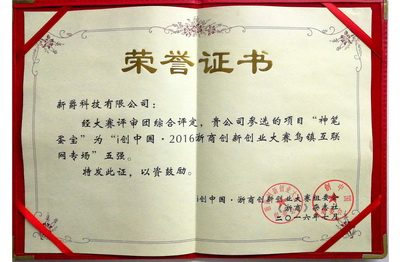 荣誉证书
新爵科技有限公司:
经大赛评审团综合评定,贵公司参选的项目“神笔
娄宝”为“i创中国·2016浙商创新创业大赛乌镇互联
网专场”五强。
特发此证,以资鼓励。
i创中国·浙商创新创业大赛组委会
《浙商》杂志社
二〇一六年七月